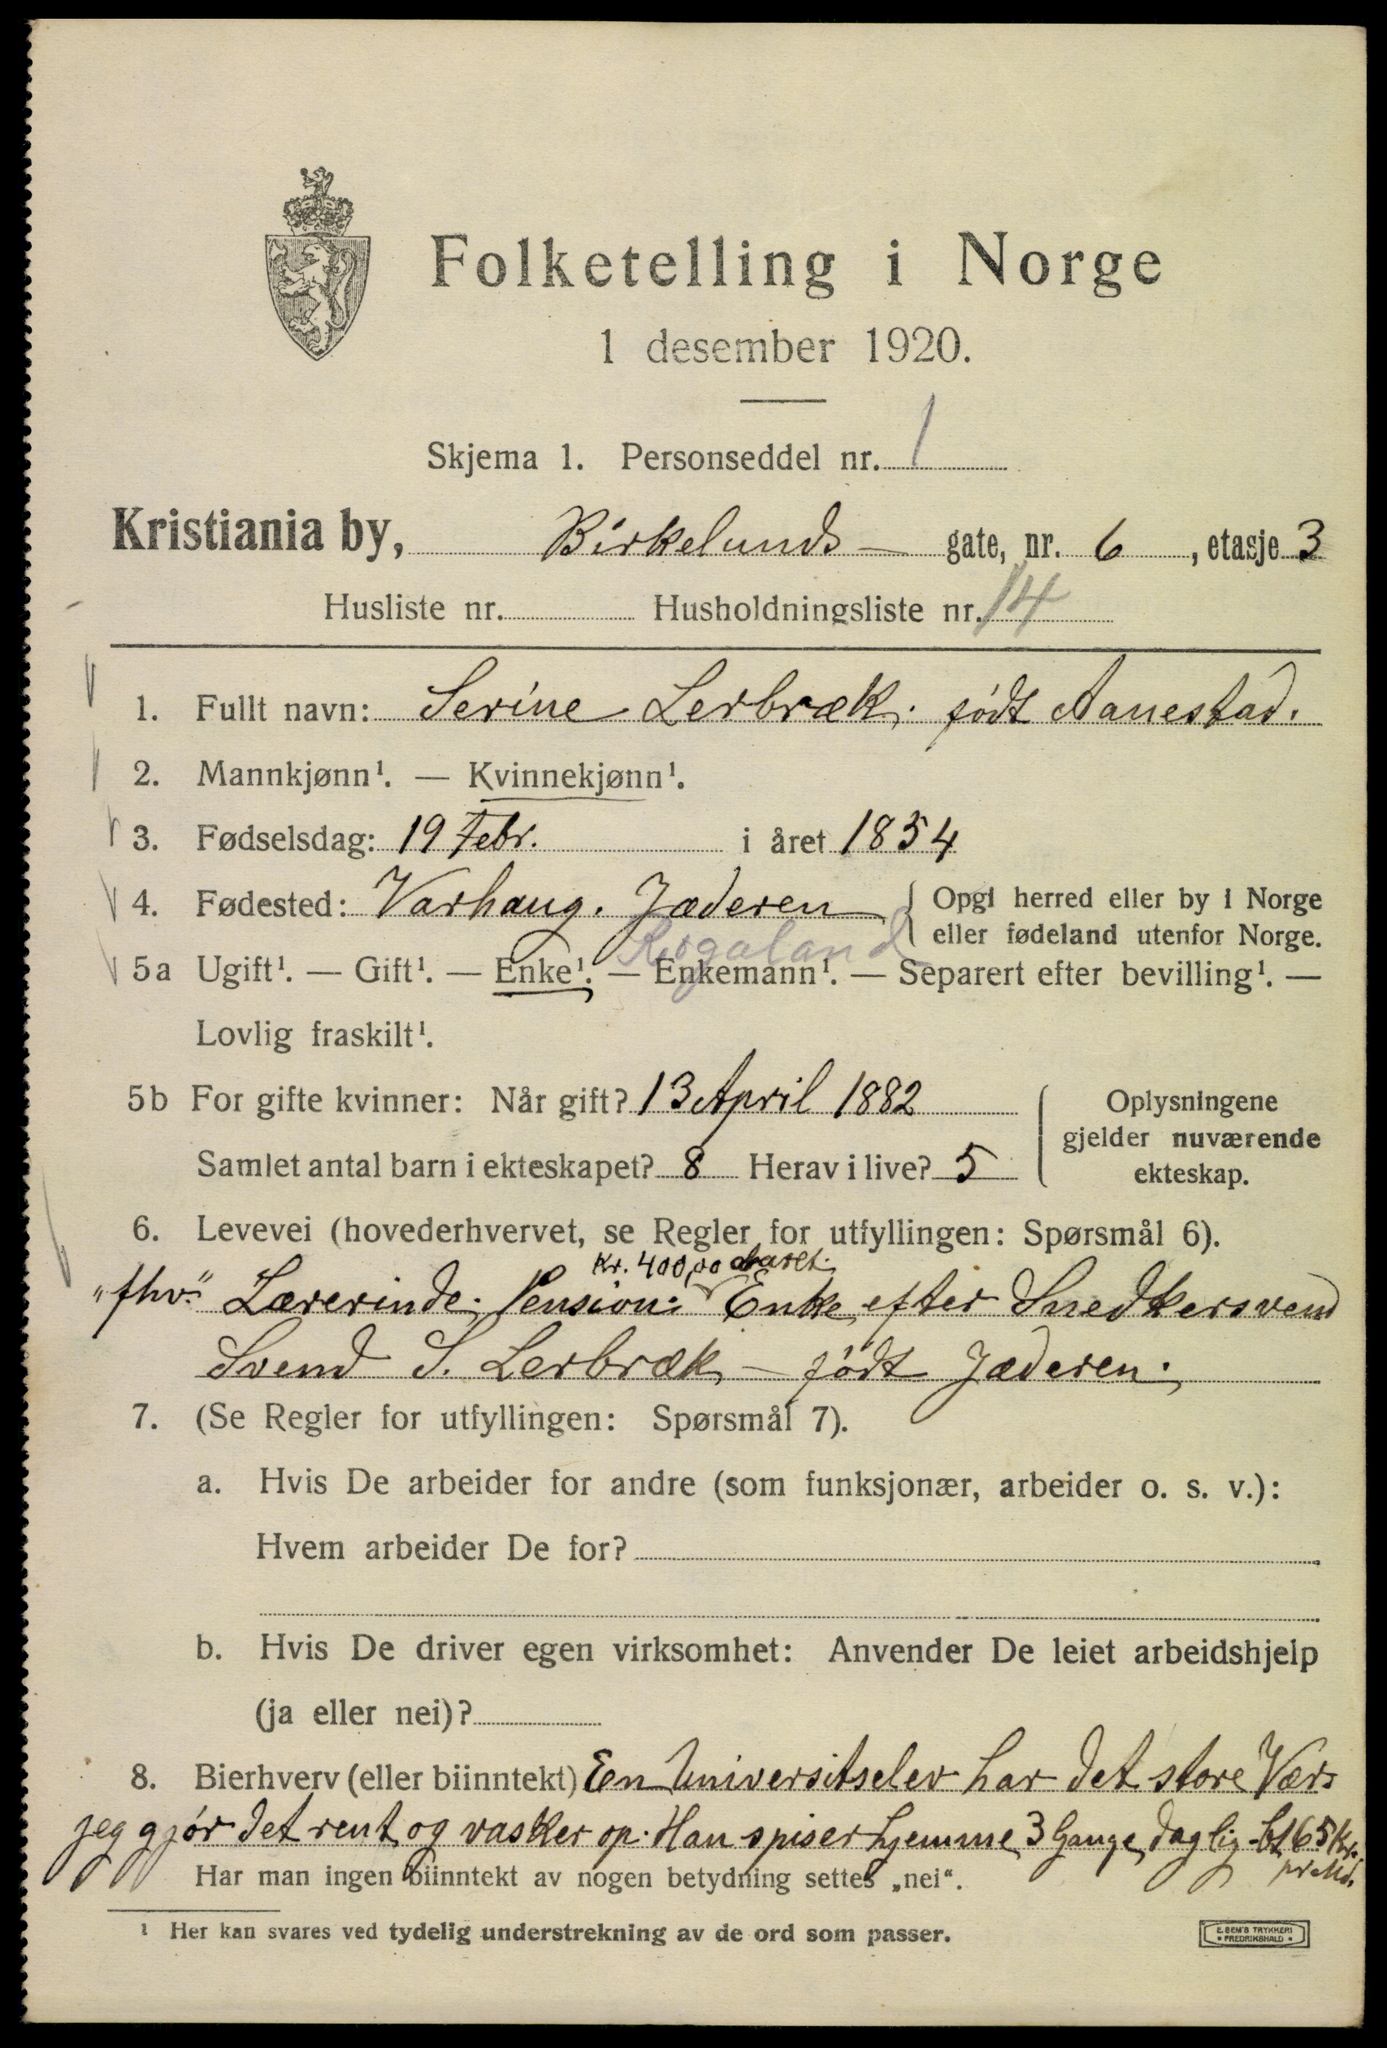 Folketelling i Norge
1 desember 1920.
Skjema 1. Personseddel nr. 1
Kristiania by, Birkelunds- gate, nr. 6, etasje 3
Husliste nr. Husholdningsliste nr. 14
1. Fullt navn: Serine Lerbræk. født Aanestad.
2. Mannkjønn¹. — Kvinnekjønn¹.
3. Fødselsdag: 19 Febr. i året 1854
4. Fødested: Varhaug. Jæderen
Rogaland
Opgi herred eller by i Norge
eller fødeland utenfor Norge.
5a Ugift¹. — Gift¹. — Enke¹. — Enkemann¹. — Separert efter bevilling¹. —
Lovlig fraskilt¹.
5b For gifte kvinner: Når gift? 13 April 1882
Samlet antal barn i ekteskapet? 8 Herav i live? 5
Oplysningene
gjelder nuværende
ekteskap.
6. Levevei (hovederhvervet, se Regler for utfyllingen: Spørsmål 6).
Kr. 400,00 Aaret.
"fhv." Lærerinde. Pension: Enke efter Snedkersvend
Svend S. Lerbræk — født Jæderen.
7. (Se Regler for utfyllingen: Spørsmål 7).
a. Hvis De arbeider for andre (som funksjonær, arbeider o. s. v.):
Hvem arbeider De for?
b. Hvis De driver egen virksomhet: Anvender De leiet arbeidshjelp
(ja eller nei)?
8. Bierhverv (eller biinntekt) En Universitselev har det store Vær.
jeg gjør det rent og vasker op. Han spiser hjemme 3 Gange daglig - bt 65 Kr.
pr Md.
Har man ingen biinntekt av nogen betydning settes „nei".
¹ Her kan svares ved tydelig understrekning av de ord som passer.
E. SEM'S TRYKKERI
• FREDRIKSHALD •